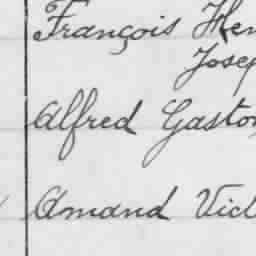 François Hen
Josep
Alfred Gaston
Amand Vict